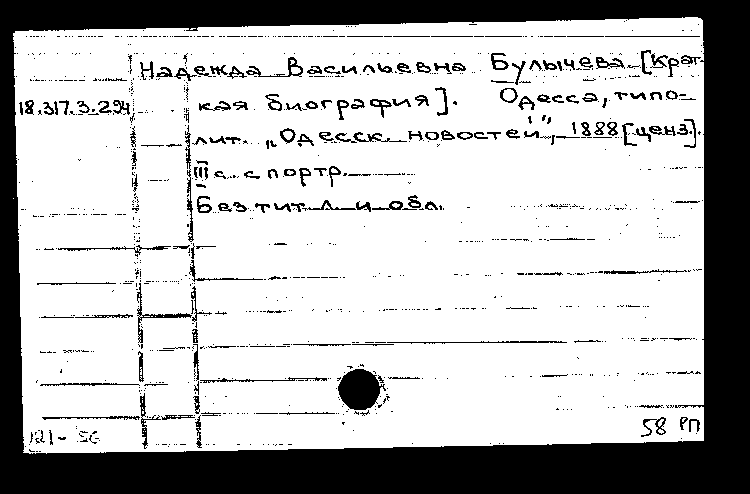 Надежда Васильевна Булычева [Крат-
18.317.3.294
кая биография]. Одесса, типо-
лит. „Одесск. новостей“, 1888 [ценз].
III с. с портр.
Без тит. л. и обл.
121-56
58 РП